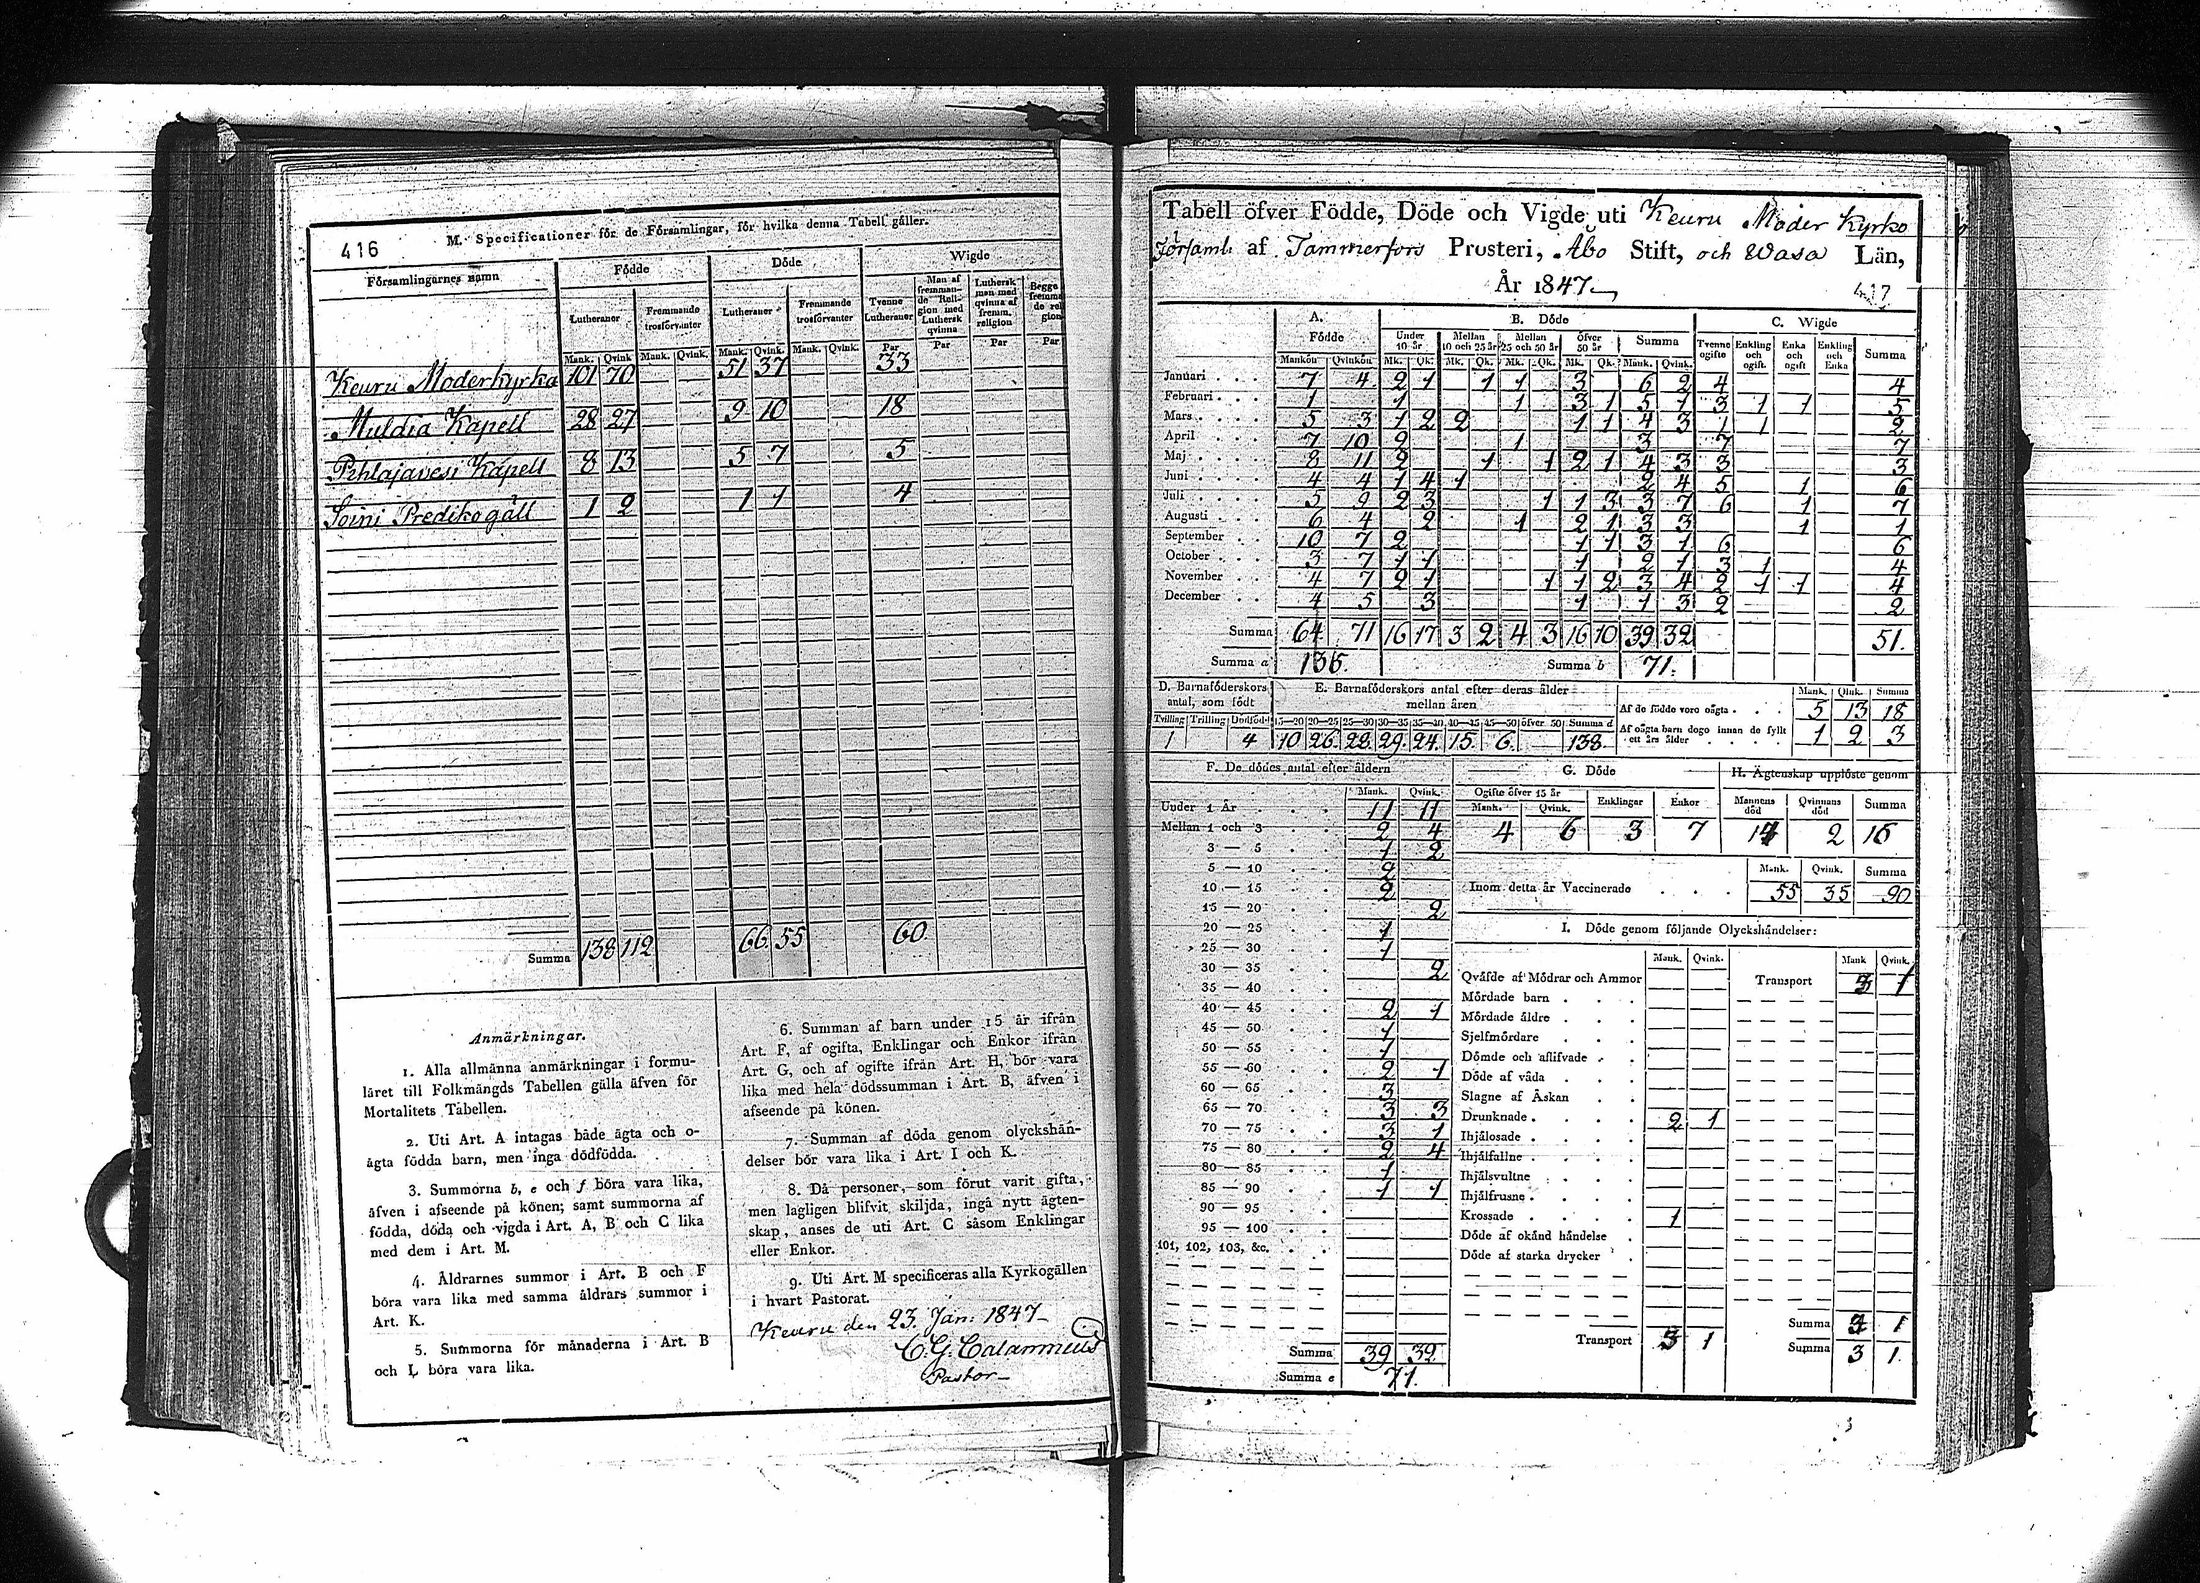 416
M. Specificationer för de Församlingar, för hvilka denna Tabell gäller.
Församlingarnes namn
Födde
Döde
Wigde
Lutheraner
Fremmande trosförvanter
Lutheraner
Fremmande trosförvanter
Tvenne Lutheraner
Man af fremmande Religion med Luthersk qvinna
Luthersk man med qvinna af fremm. religion
Begge fremmande religion
Mank. Qvink Mank. Qvink. Mank. Qvink. Mank. Qvink. Par Par Par Par
Keuru Moderkyrka 101 70 51 37 33
Muldia Kapell 28 27 9 10 18
Pihlajavesi Kapell 8 13 5 7 5
Soini Predikogäll 1 2 1 1 4
Summa 138 112 66 55 60
Anmärkningar.
1. Alla allmänna anmärkningar i formu-
läret till Folkmängds Tabellen gälla äfven för
Mortalitets Tabellen.
2. Uti Art. A intagas både ägta och o-
ägta födda barn, men inga dödfödda.
3. Summorna b, e och f böra vara lika,
äfven i afseende på könen; samt summorna af
födda, döda och vigda i Art. A, B och C lika
med dem i Art. M.
4. Åldrarnes summor i Art. B och F
böra vara lika med samma åldrars summor i
Art. K.
5. Summorna för månaderna i Art. B
och L böra vara lika.
6. Summan af barn under 15 år ifrån
Art. F, af ogifta, Enklingar och Enkor ifrån
Art. G, och af ogifte ifrån Art. H, bör vara
lika med hela dödssumman i Art. B, äfven i
afseende på könen.
7. Summan af döda genom olyckshän-
delser bör vara lika i Art. I och K.
8. Då personer, som förut varit gifta,
men lagligen blifvit skiljda, ingå nytt ägten-
skap, anses de uti Art. C såsom Enklingar
eller Enkor.
9. Uti Art. M specificeras alla Kyrkogällen
i hvart Pastorat.
Keuru den 23. Jan. 1847
C. G. Calamnius
Pastor
Tabell öfver Födde, Döde och Vigde uti Keuru Moder Kyrko
församl. af Tammerfors Prosteri, Åbo Stift, och Wasa Län,
År 1847
417
A. Födde
B. Döde
C. Wigde
Under 10 år
Mellan 10 och 25 år
Mellan 25 och 50 år
Öfver 50 år
Summa
Tvenne ogifte
Enkling och ogift
Enka och ogift
Enkling och Enka
Summa
Mankön Qvinkön Mk. Qk. Mk. Qk. Mk. Qk. Mk. Qk. Mank. Qvink.
Januari 7 4 2 1 1 1 3 6 2 4 4
Februari 1 1 1 3 1 5 1 3 1 1 5
Mars 5 3 1 2 2 1 1 4 3 1 1 2
April 7 10 2 1 3 7 7
Maj 8 11 2 1 1 2 1 4 3 3 3
Juni 4 4 1 4 1 2 4 5 1 6
Juli 5 9 2 3 1 1 3 3 7 6 1 7
Augusti 6 4 2 1 2 1 3 3 1 1
September 10 7 2 1 1 3 1 6 6
October 3 7 1 1 1 2 1 3 1 4
November 4 7 2 1 1 1 2 3 4 2 1 1 4
December 4 5 3 1 1 3 2 2
Summa 64 71 16 17 3 2 4 3 16 10 39 32 51.
Summa a 135. Summa b 71.
D. Barnaföderskors antal, som födt
E. Barnaföderskors antal efter deras ålder mellan åren
Mank. Qink. Summa
Af de födde voro oägta 5 13 18
Af oägta barn dogo innan de fyllt ett års ålder 1 2 3
Tvilling Trilling Dödfödd 15—20 20—25 25—30 30—35 35—40 40—45 45—50 öfver 50 Summa d
1 4 10 26. 28. 29. 24. 15. 6. 138.
F. De dödes antal efter åldern
Mank. Qvink.
Under 1 År 11 11
Mellan 1 och 3 2 4
3 — 5 1 2
5 — 10 2
10 — 15 2
15 — 20 2
20 — 25 1
25 — 30 1
30 — 35 2
35 — 40
40 — 45 2 1
45 — 50 1
50 — 55 1
55 — 60 2 1
60 — 65 3
65 — 70 3 3
70 — 75 3 1
75 — 80 2 4
80 — 85 1
85 — 90 1 1
90 — 95
95 — 100
101, 102, 103, &c.
Summa 39 32
Summa e 71.
G. Döde
Ogifte öfver 15 år
Mank. Qvink. Enklingar Enkor
4 6 3 7
H. Ägtenskap upplöste genom
Mannens död Qvinnans död Summa
2 16
Mank. Qvink. Summa
Inom detta år Vaccinerade 55 35 90
I. Döde genom följande Olyckshändelser:
Mank. Qvink. Mank Qvink.
Qväfde af Mödrar och Ammor
Transport 3 1
Mördade barn
Mördade äldre
Sjelfmördare
Dömde och aflifvade
Döde af våda
Slagne af Åskan
Drunknade 2 1
Ihjälosade
Ihjälfallne
Ihjälsvultne
Ihjälfrusne
Krossade 1
Döde af okänd händelse
Döde af starka drycker
Transport 3 1
Summa 3 1
Summa 3 1.